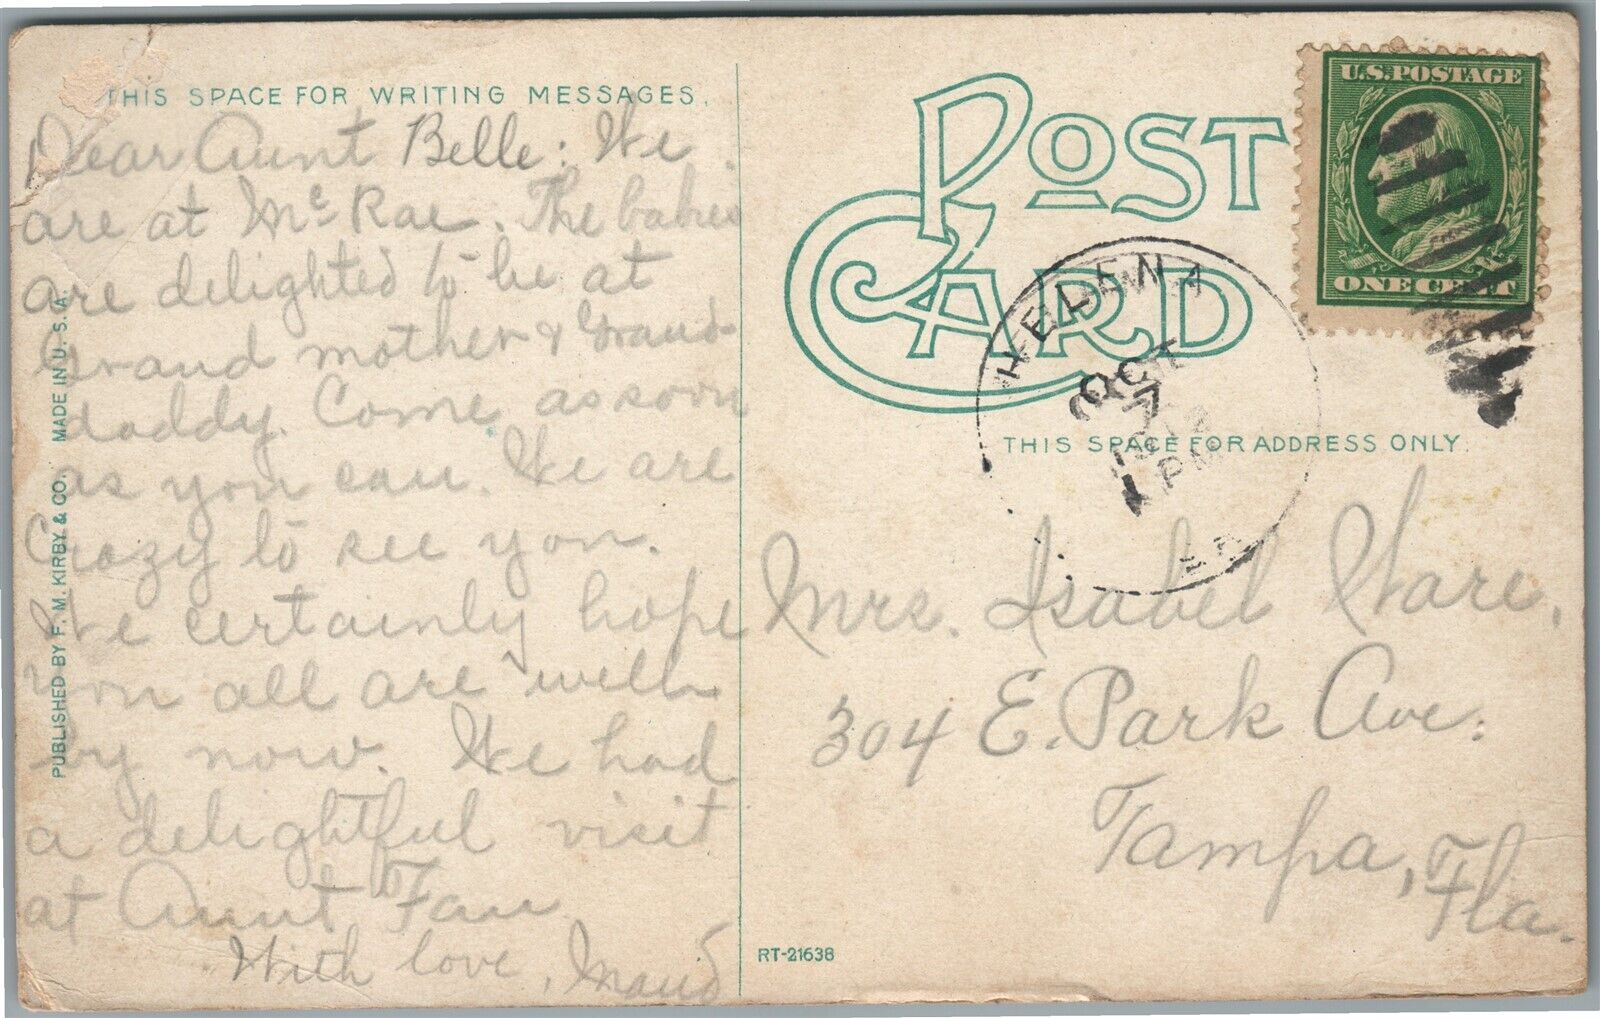 THIS SPACE FOR WRITING MESSAGES.
Dear Aunt Belle: We
are at McRae. The babies
are delighted to be at
Grand mother & Grand-
daddy. Come as soon
as you can. We are
Crazy to see you.
We certainly hope
you all are well
by now. We had
a delightful visit
at Aunt Fan
With love, Maud
PUBLISHED BY F. M. KIRBY & CO. MADE IN U. S. A.
POST
CARD
U.S. POSTAGE
ONE CENT
HELENA
OCT
7
PM
THIS SPACE FOR ADDRESS ONLY.
Mrs. Isabel Ware,
304 E. Park Ave.
Tampa, Fla.
RT-21638